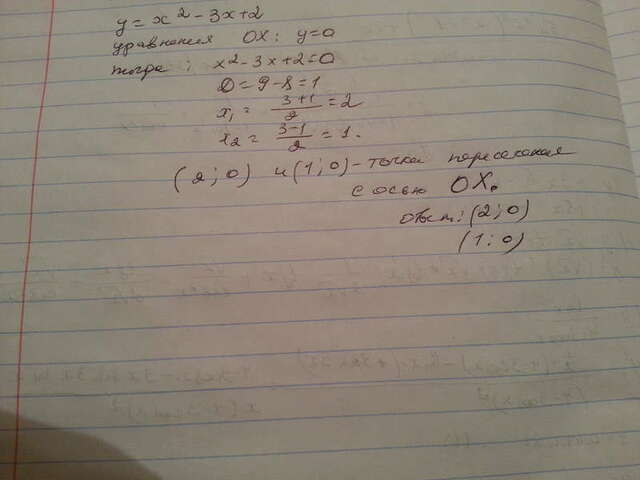 y = x² - 3x + 2
уравнения OX: y=0
тогда: x² - 3x + 2 = 0
D = 9 - 8 = 1
x₁ = (3+1)/2 = 2
x₂ = (3-1)/2 = 1.
(2; 0) и (1; 0) - точки пересечения
с осью OX.
ответ: (2; 0)
(1; 0)